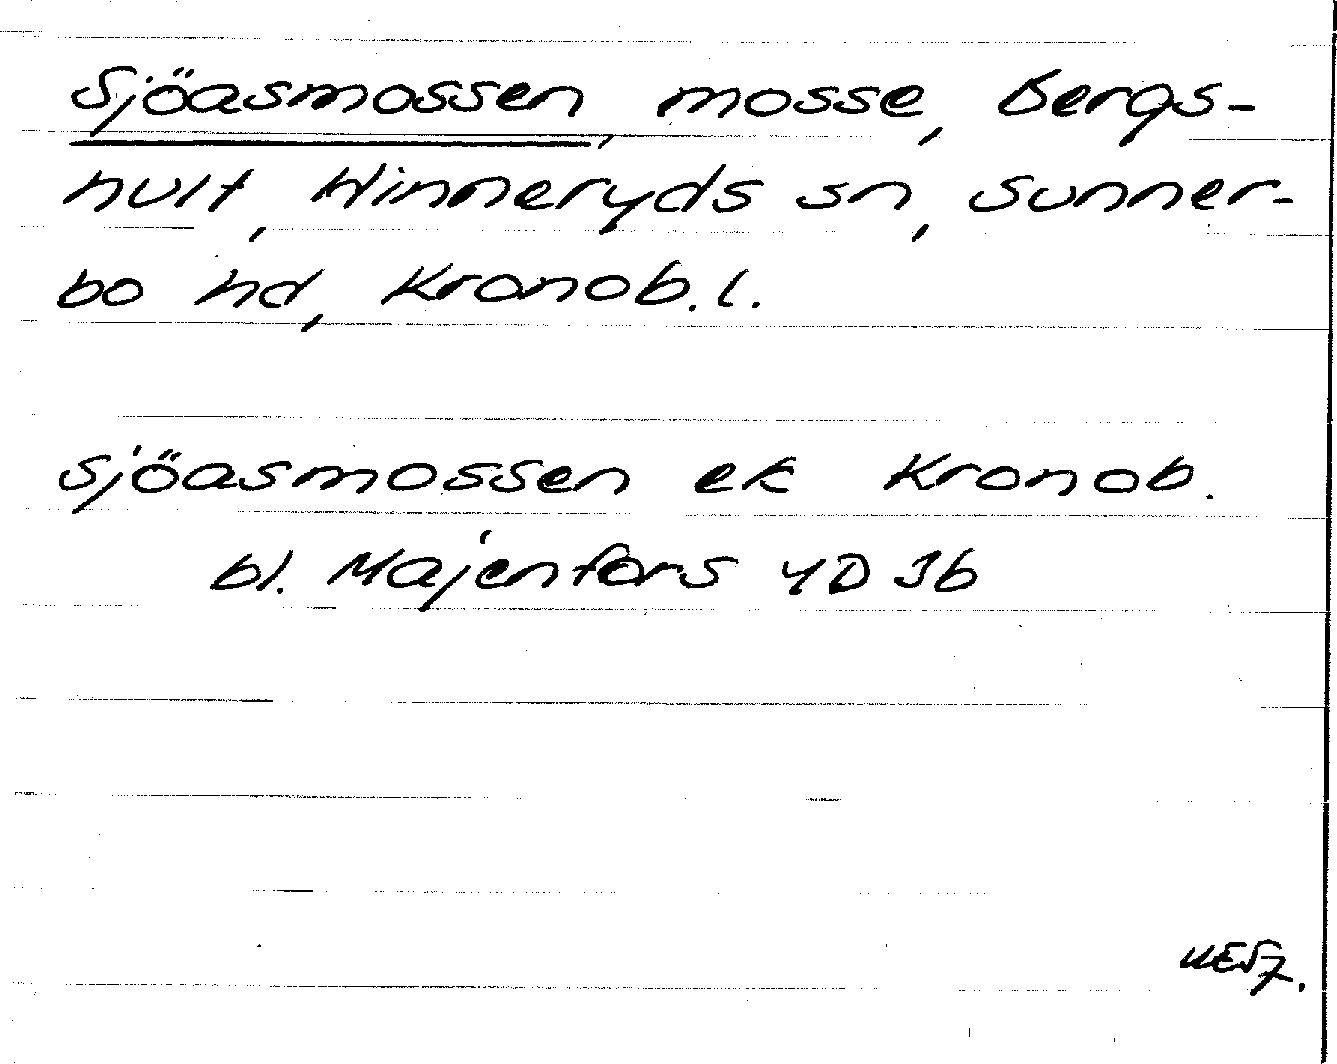 Sjöasmossen, mosse, Bergs-
hult, Hinneryds sn, Sunner-
bo hd, Kronob. l.
Sjöasmossen ek Kronob.
bl. Majenfors 4D 3b